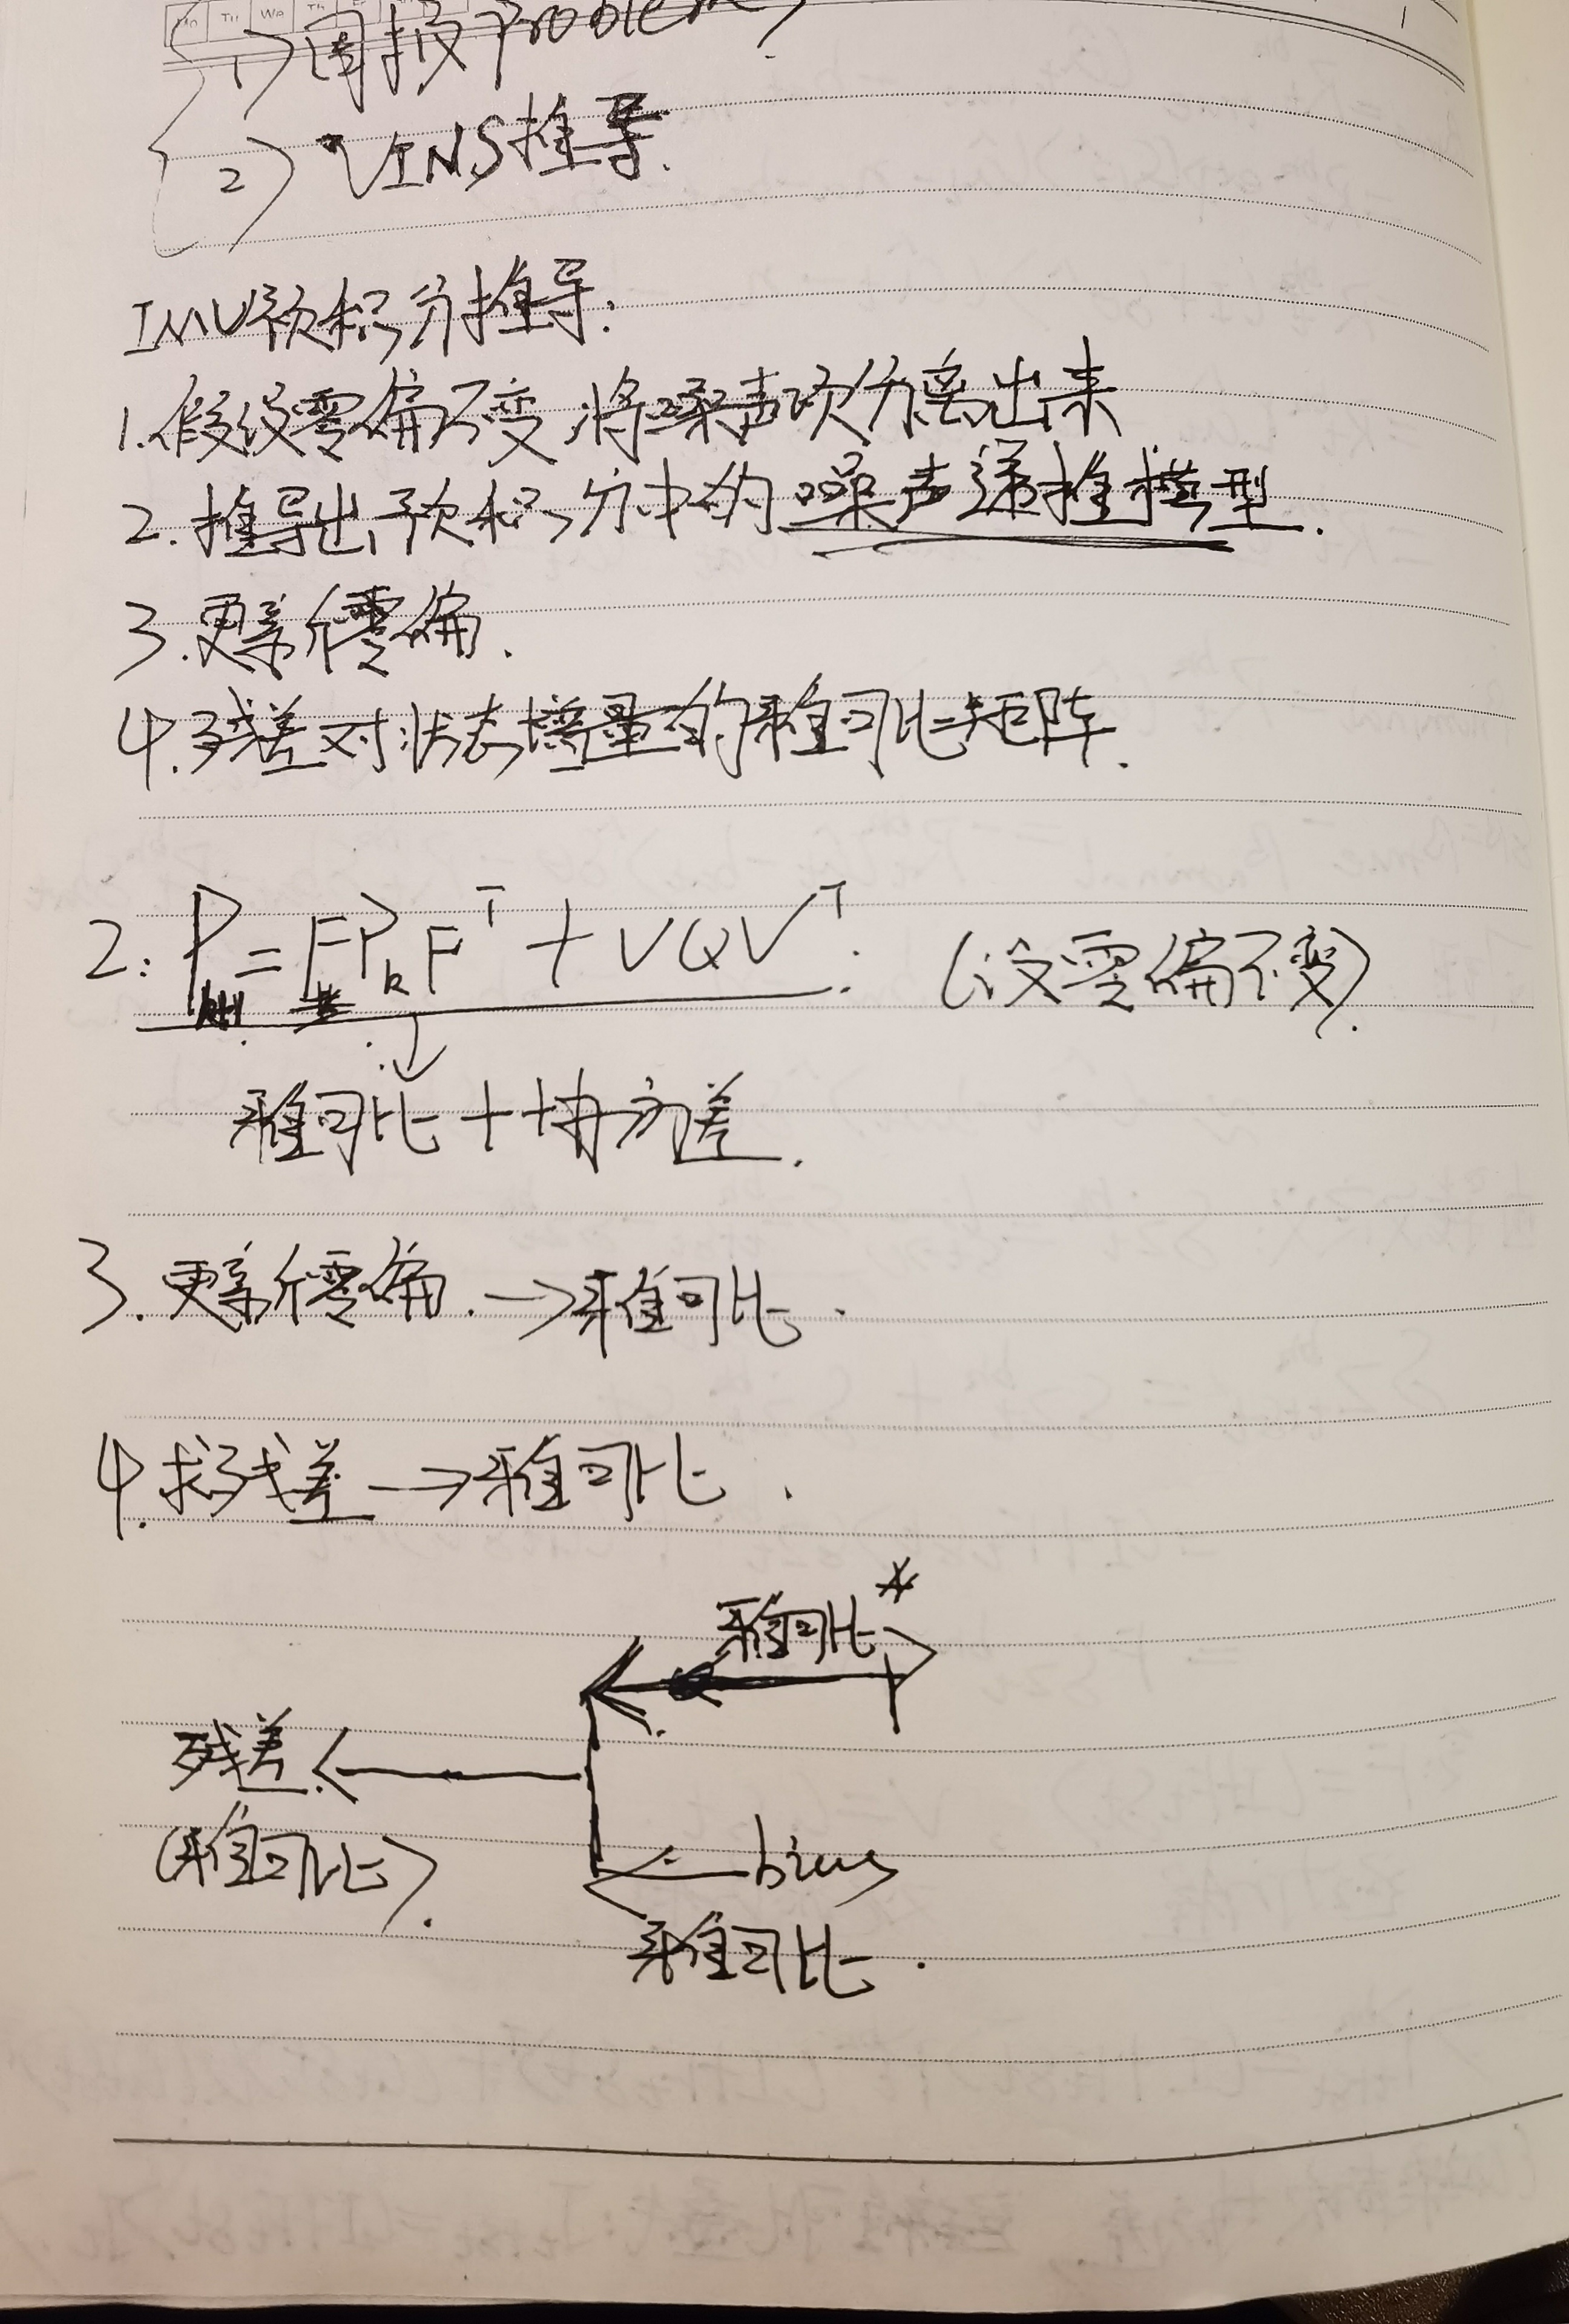 Tu We Th
(1) 周报 Problem
(2) VINS推导.
IMU预积分推导:
1.假设零偏不变,将噪声项分离出来
2.推导出预积分中的噪声递推模型.
3.更新零偏.
4.残差对状态增量的雅可比矩阵.
2: P_{k+1} = F P_k F^T + V Q V^T. (设零偏不变).
雅可比 + 协方差.
3.更新零偏. → 雅可比.
4.求残差 → 雅可比.
雅可比 *
残差
← bias
(雅可比).
雅可比.